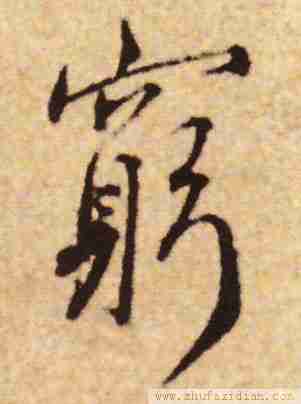 窮
www.zhufazidian.com